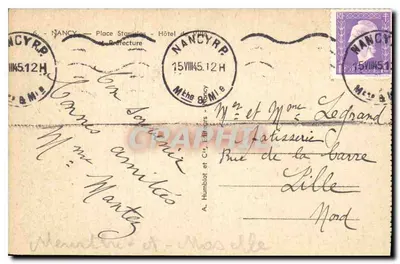 6. - NANCY - Place Stanislas - Hôtel
et Préfecture
NANCY R.P.
15 VIII 45. 12 H
Mthe & Mlle
NANCY R.P.
15 VIII 45. 12 H
Mthe & Mlle
NANCY R.P.
Bon souvenir
Bonnes amitiés
Mme Mantez
A. Humblot et Cie, Editeurs, Nancy
Mr et Mme Legrand
Patisserie
Rue de la barre
Lille
Nord
Meurthe-et-Moselle